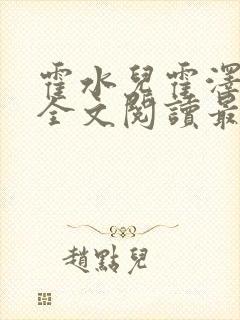 霍水兒霍澤
全文閱讀最
趙點兒